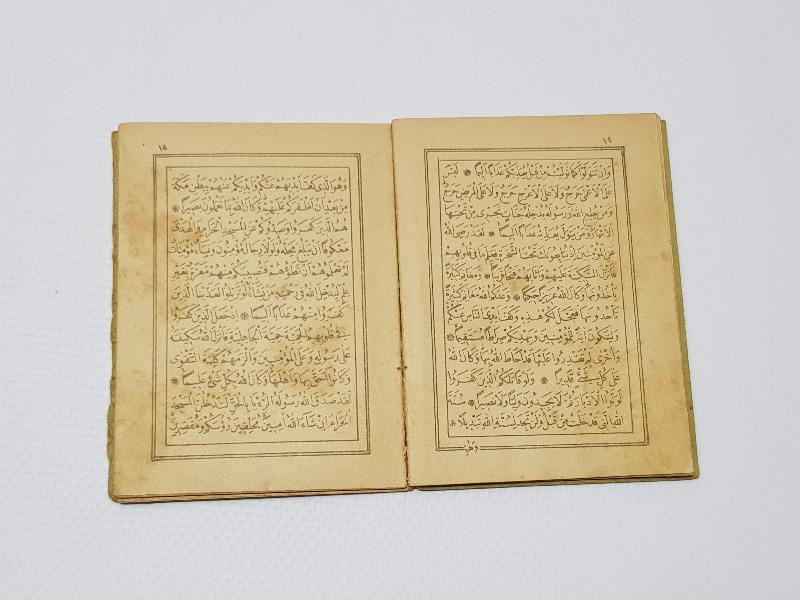 ١٤
وَاِنْ تَتَوَلَّوْا كَمَا تَوَلَّيْتُمْ مِنْ قَبْلُ يُعَذِّبْكُمْ عَذَاباً اَلِيماً ۞ لَيْسَ
عَلَى الْاَعْمٰى حَرَجٌ وَلَا عَلَى الْاَعْرَجِ حَرَجٌ وَلَا عَلَى الْمَرِيضِ حَرَجٌ
وَمَنْ يُطِعِ اللّٰهَ وَرَسُولَهُ يُدْخِلْهُ جَنَّاتٍ تَجْرِى مِنْ تَحْتِهَا
الْاَنْهَارُ وَمَنْ يَتَوَلَّ يُعَذِّبْهُ عَذَاباً اَلِيماً ۞ لَقَدْ رَضِىَ اللّٰهُ
عَنِ الْمُؤْمِنِينَ اِذْ يُبَايِعُونَكَ تَحْتَ الشَّجَرَةِ فَعَلِمَ مَا فِى قُلُوبِهِمْ
فَاَنْزَلَ السَّكِينَةَ عَلَيْهِمْ وَاَثَابَهُمْ فَتْحاً قَرِيباً ۞ وَمَغَانِمَ كَثِيرَةً
يَأْخُذُونَهَا وَكَانَ اللّٰهُ عَزِيزاً حَكِيماً ۞ وَعَدَكُمُ اللّٰهُ مَغَانِمَ كَثِيرَةً
تَأْخُذُونَهَا فَعَجَّلَ لَكُمْ هٰذِهِ وَكَفَّ اَيْدِىَ النَّاسِ عَنْكُمْ
وَلِتَكُونَ اٰيَةً لِلْمُؤْمِنِينَ وَيَهْدِيَكُمْ صِرَاطاً مُسْتَقِيماً ۞
وَاُخْرٰى لَمْ تَقْدِرُوا عَلَيْهَا قَدْ اَحَاطَ اللّٰهُ بِهَا وَكَانَ اللّٰهُ
عَلٰى كُلِّ شَىْءٍ قَدِيراً ۞ وَلَوْ قَاتَلَكُمُ الَّذِينَ كَفَرُوا
لَوَلَّوُا الْاَدْبَارَ ثُمَّ لَا يَجِدُونَ وَلِيّاً وَلَا نَصِيراً ۞ سُنَّةَ
اللّٰهِ الَّتِى قَدْ خَلَتْ مِنْ قَبْلُ وَلَنْ تَجِدَ لِسُنَّةِ اللّٰهِ تَبْدِيلاً ۞
وَهُوَ
١٥
وَهُوَ الَّذِى كَفَّ اَيْدِيَهُمْ عَنْكُمْ وَاَيْدِيَكُمْ عَنْهُمْ بِبَطْنِ مَكَّةَ
مِنْ بَعْدِ اَنْ اَظْفَرَكُمْ عَلَيْهِمْ وَكَانَ اللّٰهُ بِمَا تَعْمَلُونَ بَصِيراً ۞
هُمُ الَّذِينَ كَفَرُوا وَصَدُّوكُمْ عَنِ الْمَسْجِدِ الْحَرَامِ وَالْهَدْىَ
مَعْكُوفاً اَنْ يَبْلُغَ مَحِلَّهُ وَلَوْلَا رِجَالٌ مُؤْمِنُونَ وَنِسَاءٌ مُؤْمِنَاتٌ
لَمْ تَعْلَمُوهُمْ اَنْ تَطَؤُهُمْ فَتُصِيبَكُمْ مِنْهُمْ مَعَرَّةٌ بِغَيْرِ
عِلْمٍ لِيُدْخِلَ اللّٰهُ فِى رَحْمَتِهِ مَنْ يَشَاءُ لَوْ تَزَيَّلُوا لَعَذَّبْنَا الَّذِينَ
كَفَرُوا مِنْهُمْ عَذَاباً اَلِيماً ۞ اِذْ جَعَلَ الَّذِينَ كَفَرُوا
فِى قُلُوبِهِمُ الْحَمِيَّةَ حَمِيَّةَ الْجَاهِلِيَّةِ فَاَنْزَلَ اللّٰهُ سَكِينَتَهُ
عَلٰى رَسُولِهِ وَعَلَى الْمُؤْمِنِينَ وَاَلْزَمَهُمْ كَلِمَةَ التَّقْوٰى
وَكَانُوا اَحَقَّ بِهَا وَاَهْلَهَا وَكَانَ اللّٰهُ بِكُلِّ شَىْءٍ عَلِيماً ۞
لَقَدْ صَدَقَ اللّٰهُ رَسُولَهُ الرُّءْيَا بِالْحَقِّ لَتَدْخُلُنَّ الْمَسْجِدَ
الْحَرَامَ اِنْ شَاءَ اللّٰهُ اٰمِنِينَ مُحَلِّقِينَ رُؤُسَكُمْ وَمُقَصِّرِينَ